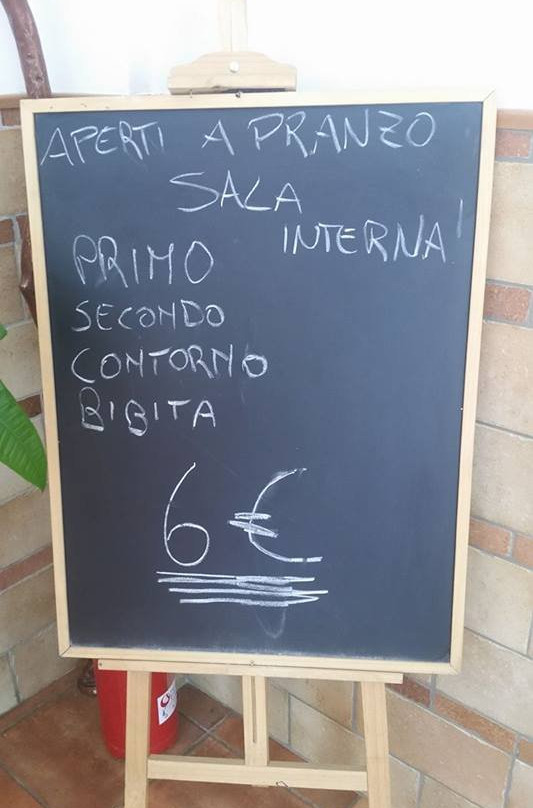 APERTI A PRANZO
SALA
INTERNA'
PRIMO
SECONDO
CONTORNO
BIBITA
6 €